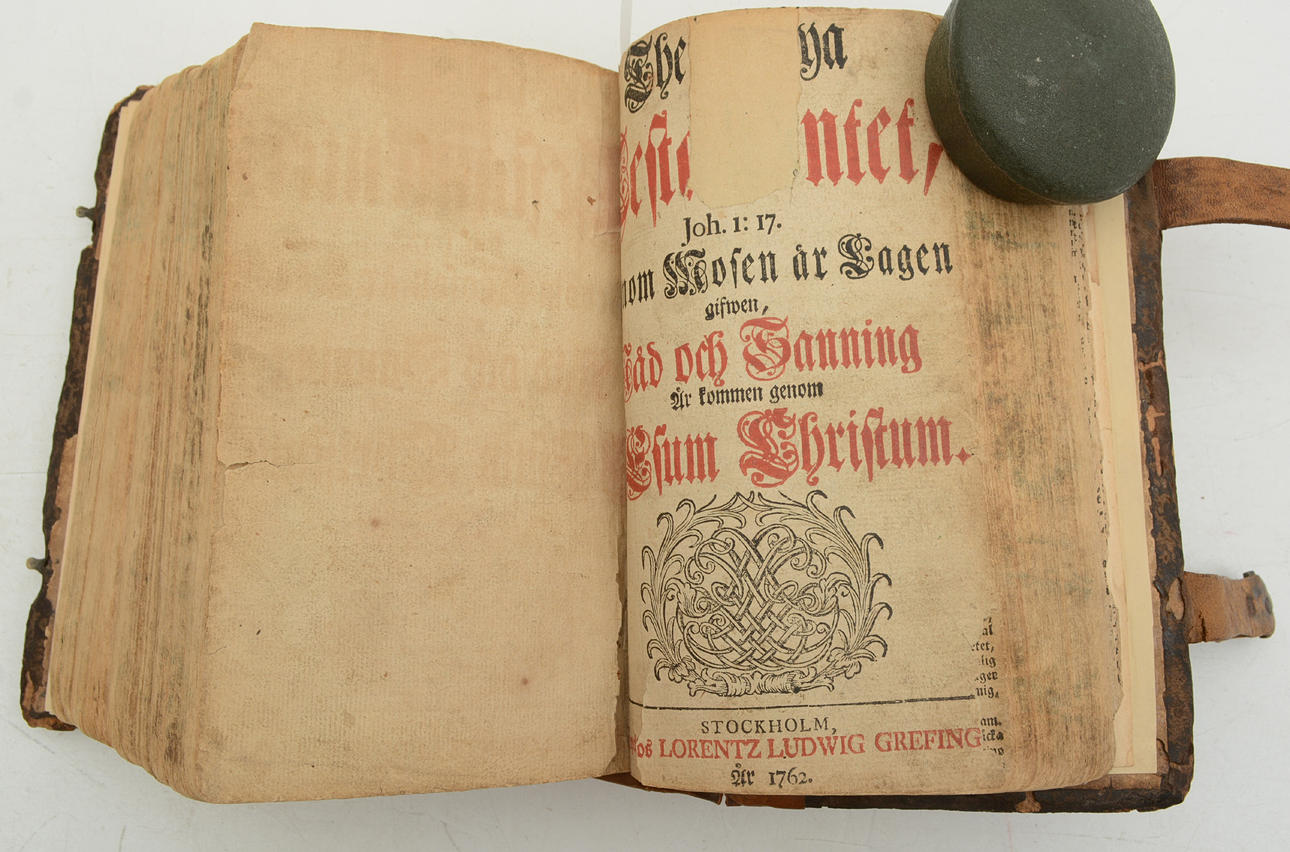 The ya
Testa ntet,
Joh. 1: 17.
nom Mosen är Lagen
gifwen,
Nåd och Sanning
Är kommen genom
Esum Christum.
STOCKHOLM,
Hos LORENTZ LUDWIG GREFING
År 1762.
al
tet,
lig
ger
nig,
am.
icka